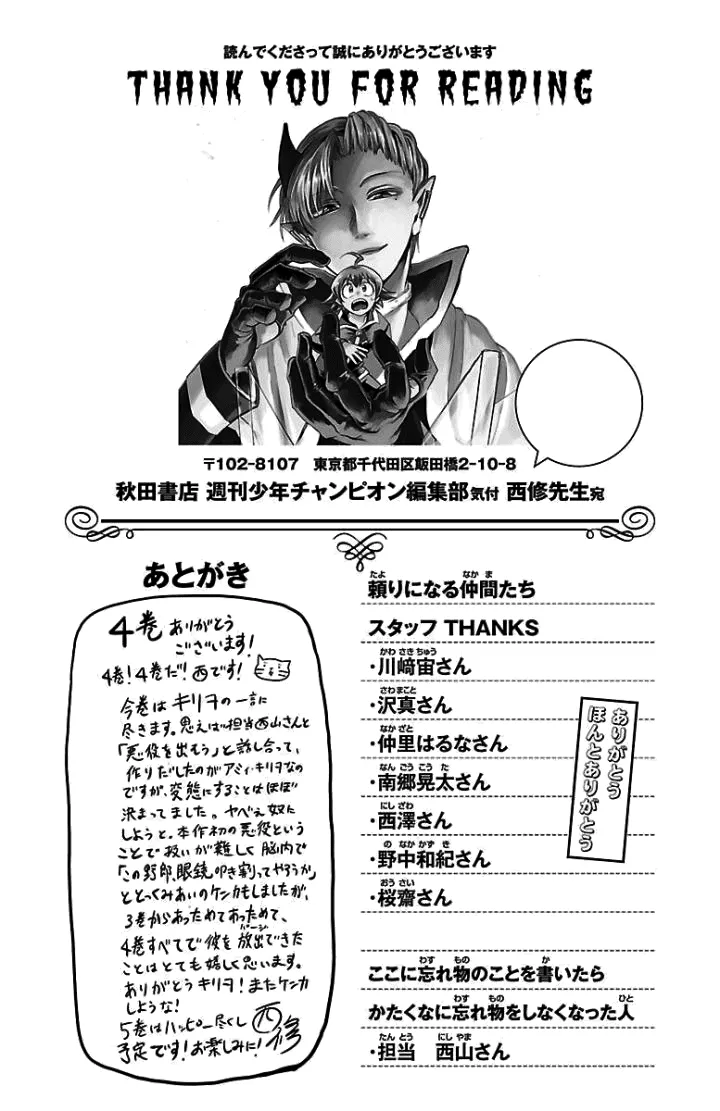 読んでくださって誠にありがとうございます
THANK YOU FOR READING
〒102-8107 東京都千代田区飯田橋2-10-8
秋田書店 週刊少年チャンピオン編集部気付 西修先生宛
あとがき
4巻ありがとう
ございます!
4巻!4巻だ!西です!
今巻はキリヲの一言に
尽きます。思えば担当西山さんと
「悪役を出そう」と話し合って、
作りだしたのがアミィ・キリヲなの
ですが、変態にすることはほぼ
決まってました。ヤベぇ奴に
しようと。本作初の悪役という
ことで扱いが難しく脳内で
「この野郎、眼鏡叩き割ってやろうか」
ととっくみあいのケンカもしましたが、
3巻からあっためてあっためて、
4巻すべてで彼を放出できた
ことはとても嬉しく思います。
ありがとうキリヲ!またケンカ
しような!
5巻はハッピー尽くし
予定です!お楽しみに!
西修
頼りになる仲間たち
スタッフ THANKS
・川﨑宙さん
・沢真さん
・仲里はるなさん
・南郷晃太さん
・西澤さん
・野中和紀さん
・桜齋さん
ありがとう
ほんとありがとう
ここに忘れ物のことを書いたら
かたくなに忘れ物をしなくなった人
・担当 西山さん